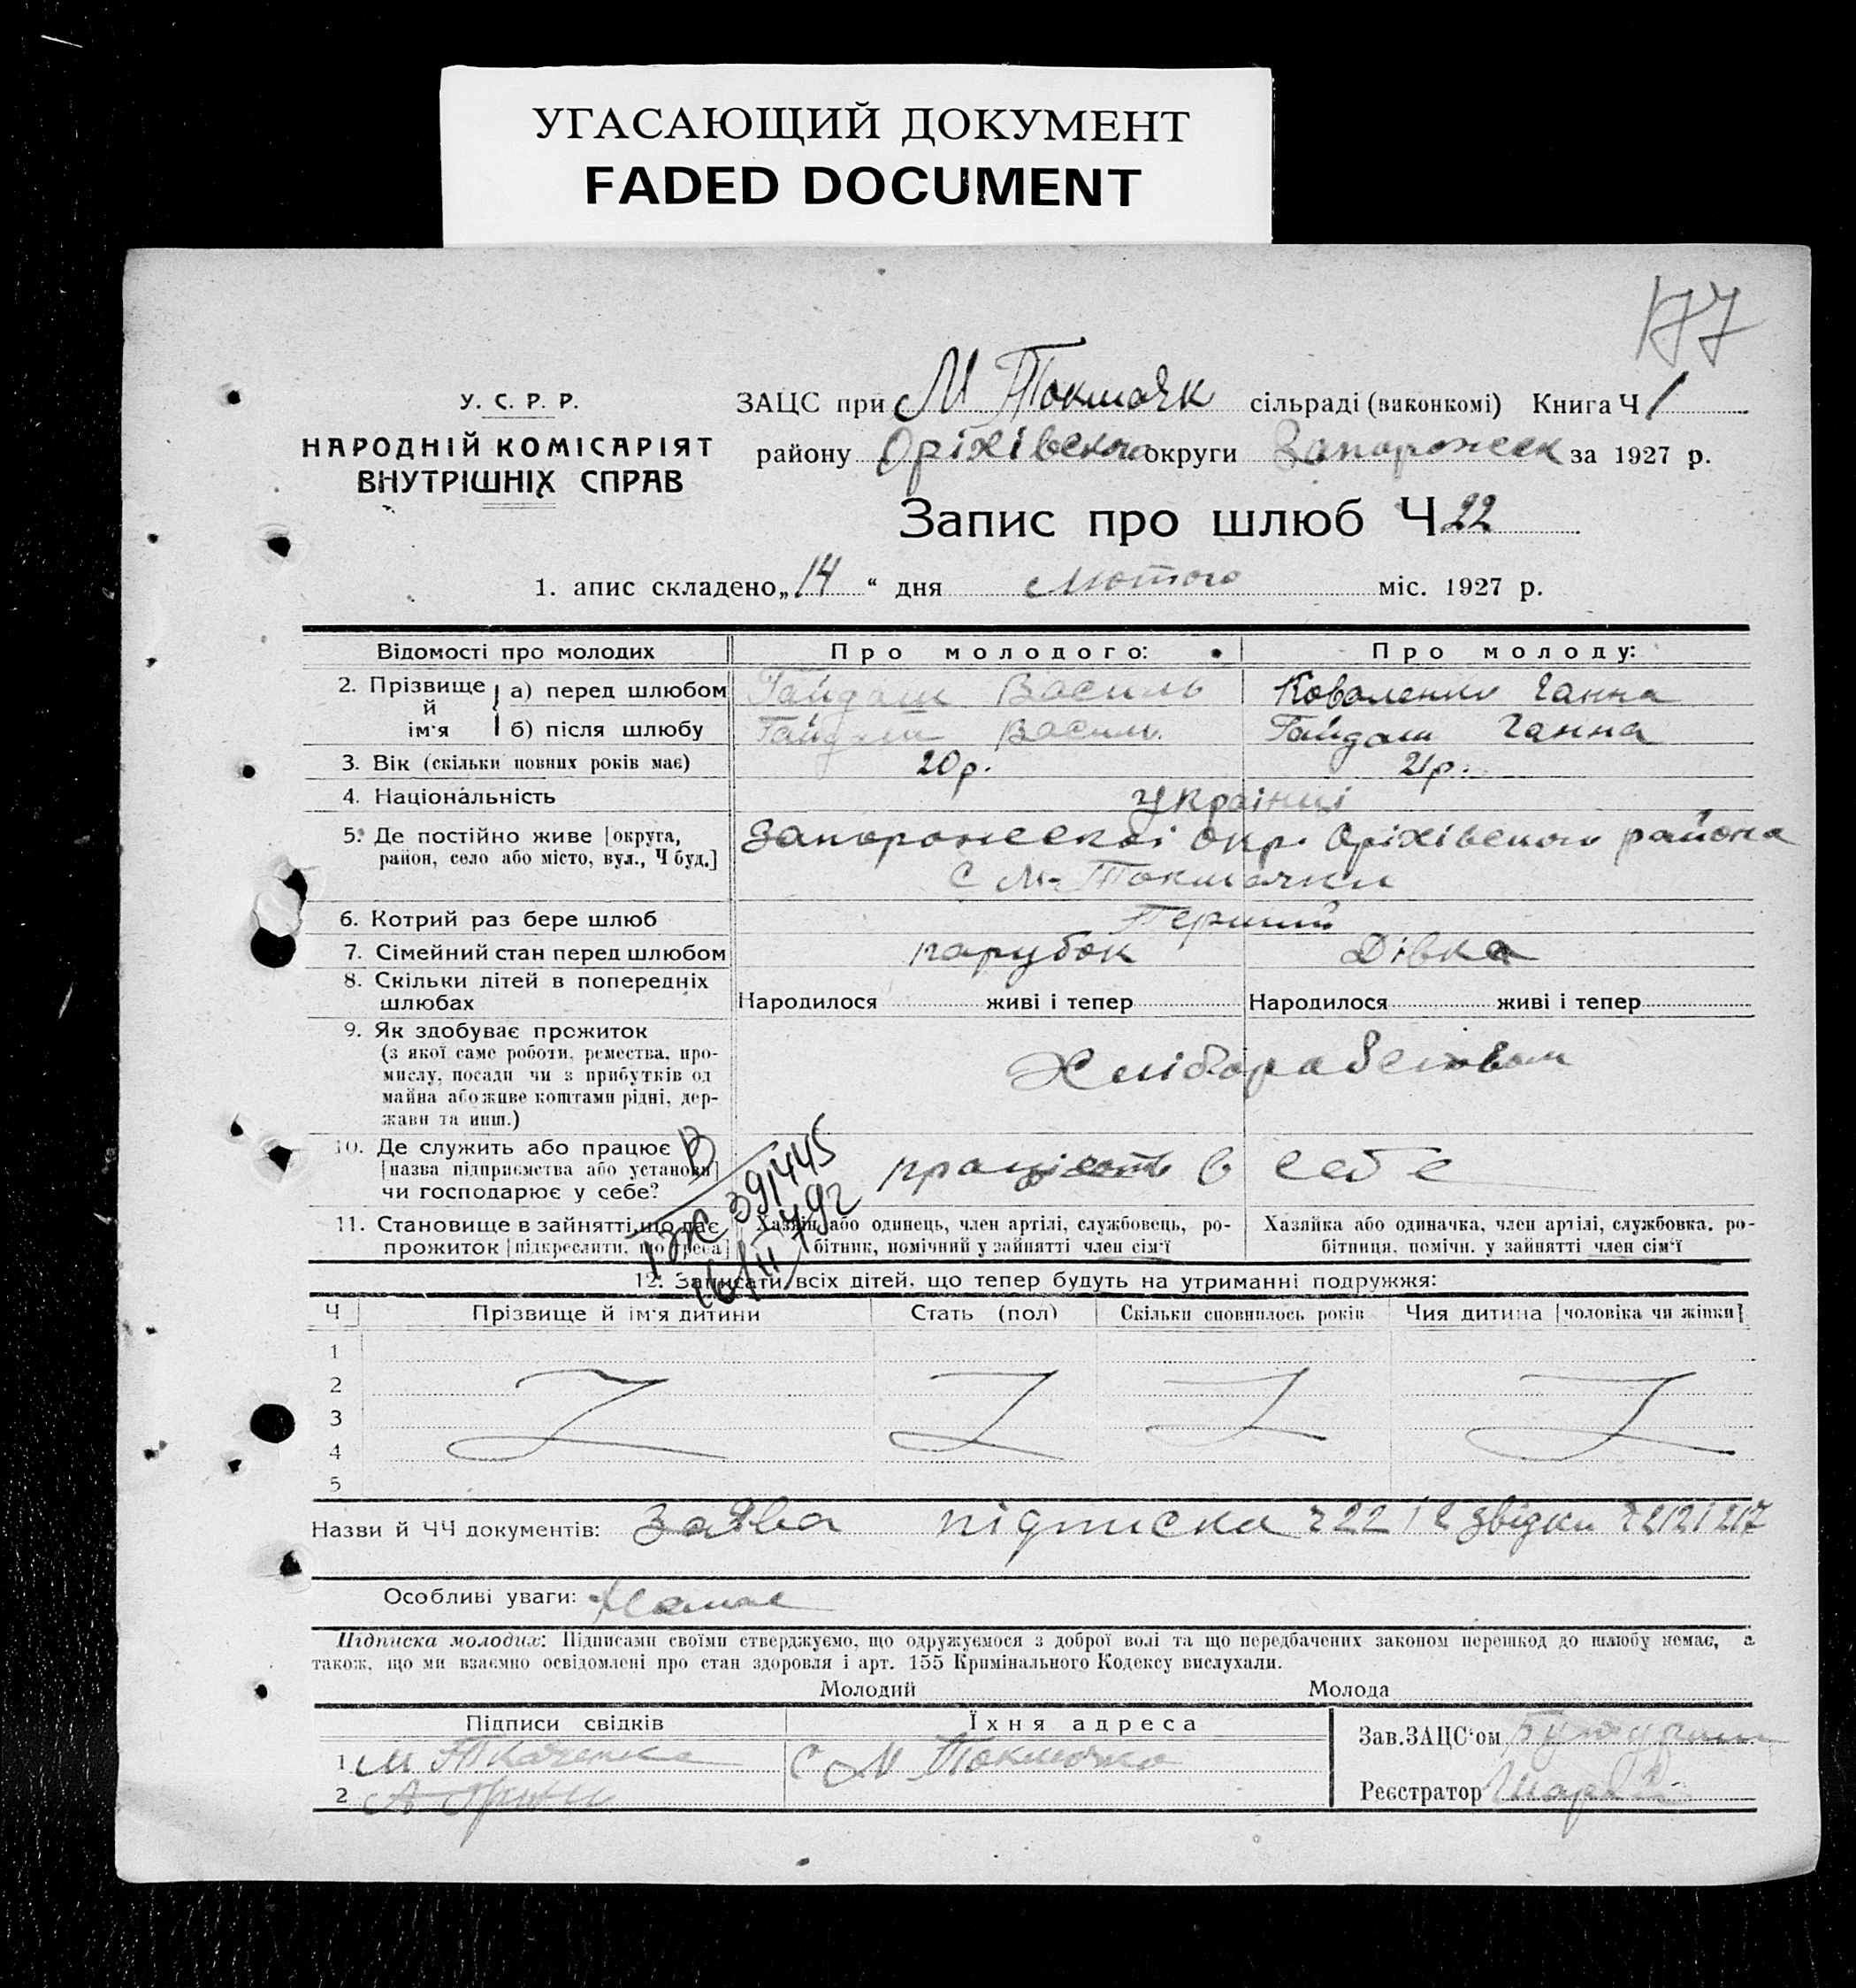 УГАСАЮЩИЙ ДОКУМЕНТ
FADED DOCUMENT
177
У. С. Р. Р.
НАРОДНІЙ КОМІСАРІЯТ
ВНУТРІШНІХ СПРАВ
ЗАЦС при М Токмачк сільраді (виконкомі) Книга Ч 1
району Оріхівського округи Запорожск за 1927 р.
Запис про шлюб Ч 22
1. апис складено „14“ дня Лютого міс. 1927 р.
Відомості про молодих Про молодого: Про молоду:
2. Прізвище й ім'я а) перед шлюбом Гайдаш Василь Коваленко Ганна
б) після шлюбу Гайдаш Василь Гайдаш Ганна
3. Вік (скільки повних років має) 20 р. 21 р.
4. Національність Українці
5. Де постійно живе [округа, район, село або місто, вул., Ч буд.] Запорожскої окр. Оріхівського района
С М-Токмачки
6. Котрий раз бере шлюб Перший
7. Сімейний стан перед шлюбом парубок Дівка
8. Скільки дітей в попередніх шлюбах Народилося живі і тепер Народилося живі і тепер
9. Як здобуває прожиток
(з якої саме роботи, ремества, про-
мислу, посади чи з прибутків од
майна або живе коштами рідні, дер-
жави та инш.)
Хліборобством
10. Де служить або працює
[назва підприємства або установи]
чи господарює у себе?
працюють в себе
В
1ЖС 391445
16/II 792
11. Становище в зайнятті, що дає
прожиток [підкреслити, що треба]
Хазяїн або одинець, член артілі, службовець, ро-
бітник, помічний у зайнятті член сім'ї
Хазяйка або одиначка, член артілі, службовка, ро-
бітниця, помічн. у зайнятті член сім'ї
12. Записати всіх дітей, що тепер будуть на утриманні подружжя:
Ч Прізвище й ім'я дитини Стать (пол) Скільки сповнилось років Чия дитина [чоловіка чи жінки]
1
2
3
4
5
Назви й ЧЧ документів: Заява підписка ч 22 і 2 звідки
Особливі уваги: Немає
Підписка молодих: Підписами своїми стверджуємо, що одружуємося з доброї волі та що передбачених законом перешкод до шлюбу немає, а
також, що ми взаємно освідомлені про стан здоровля і арт. 155 Кримінального Кодексу вислухали.
Молодий Молода
Підписи свідків Їхня адреса Зав. ЗАЦС'ом
1 М Ткаченко С М Токмачка
2 А
Реєстратор